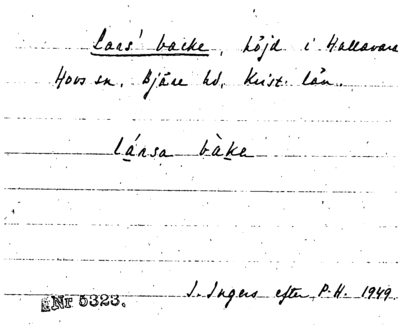 Lars' backe, höjd i Hallavara
Hovs sn, Bjäre hd, Krist. län.
lársa bàka
Nr 5323.
I. Ingers efter P.H. 1949